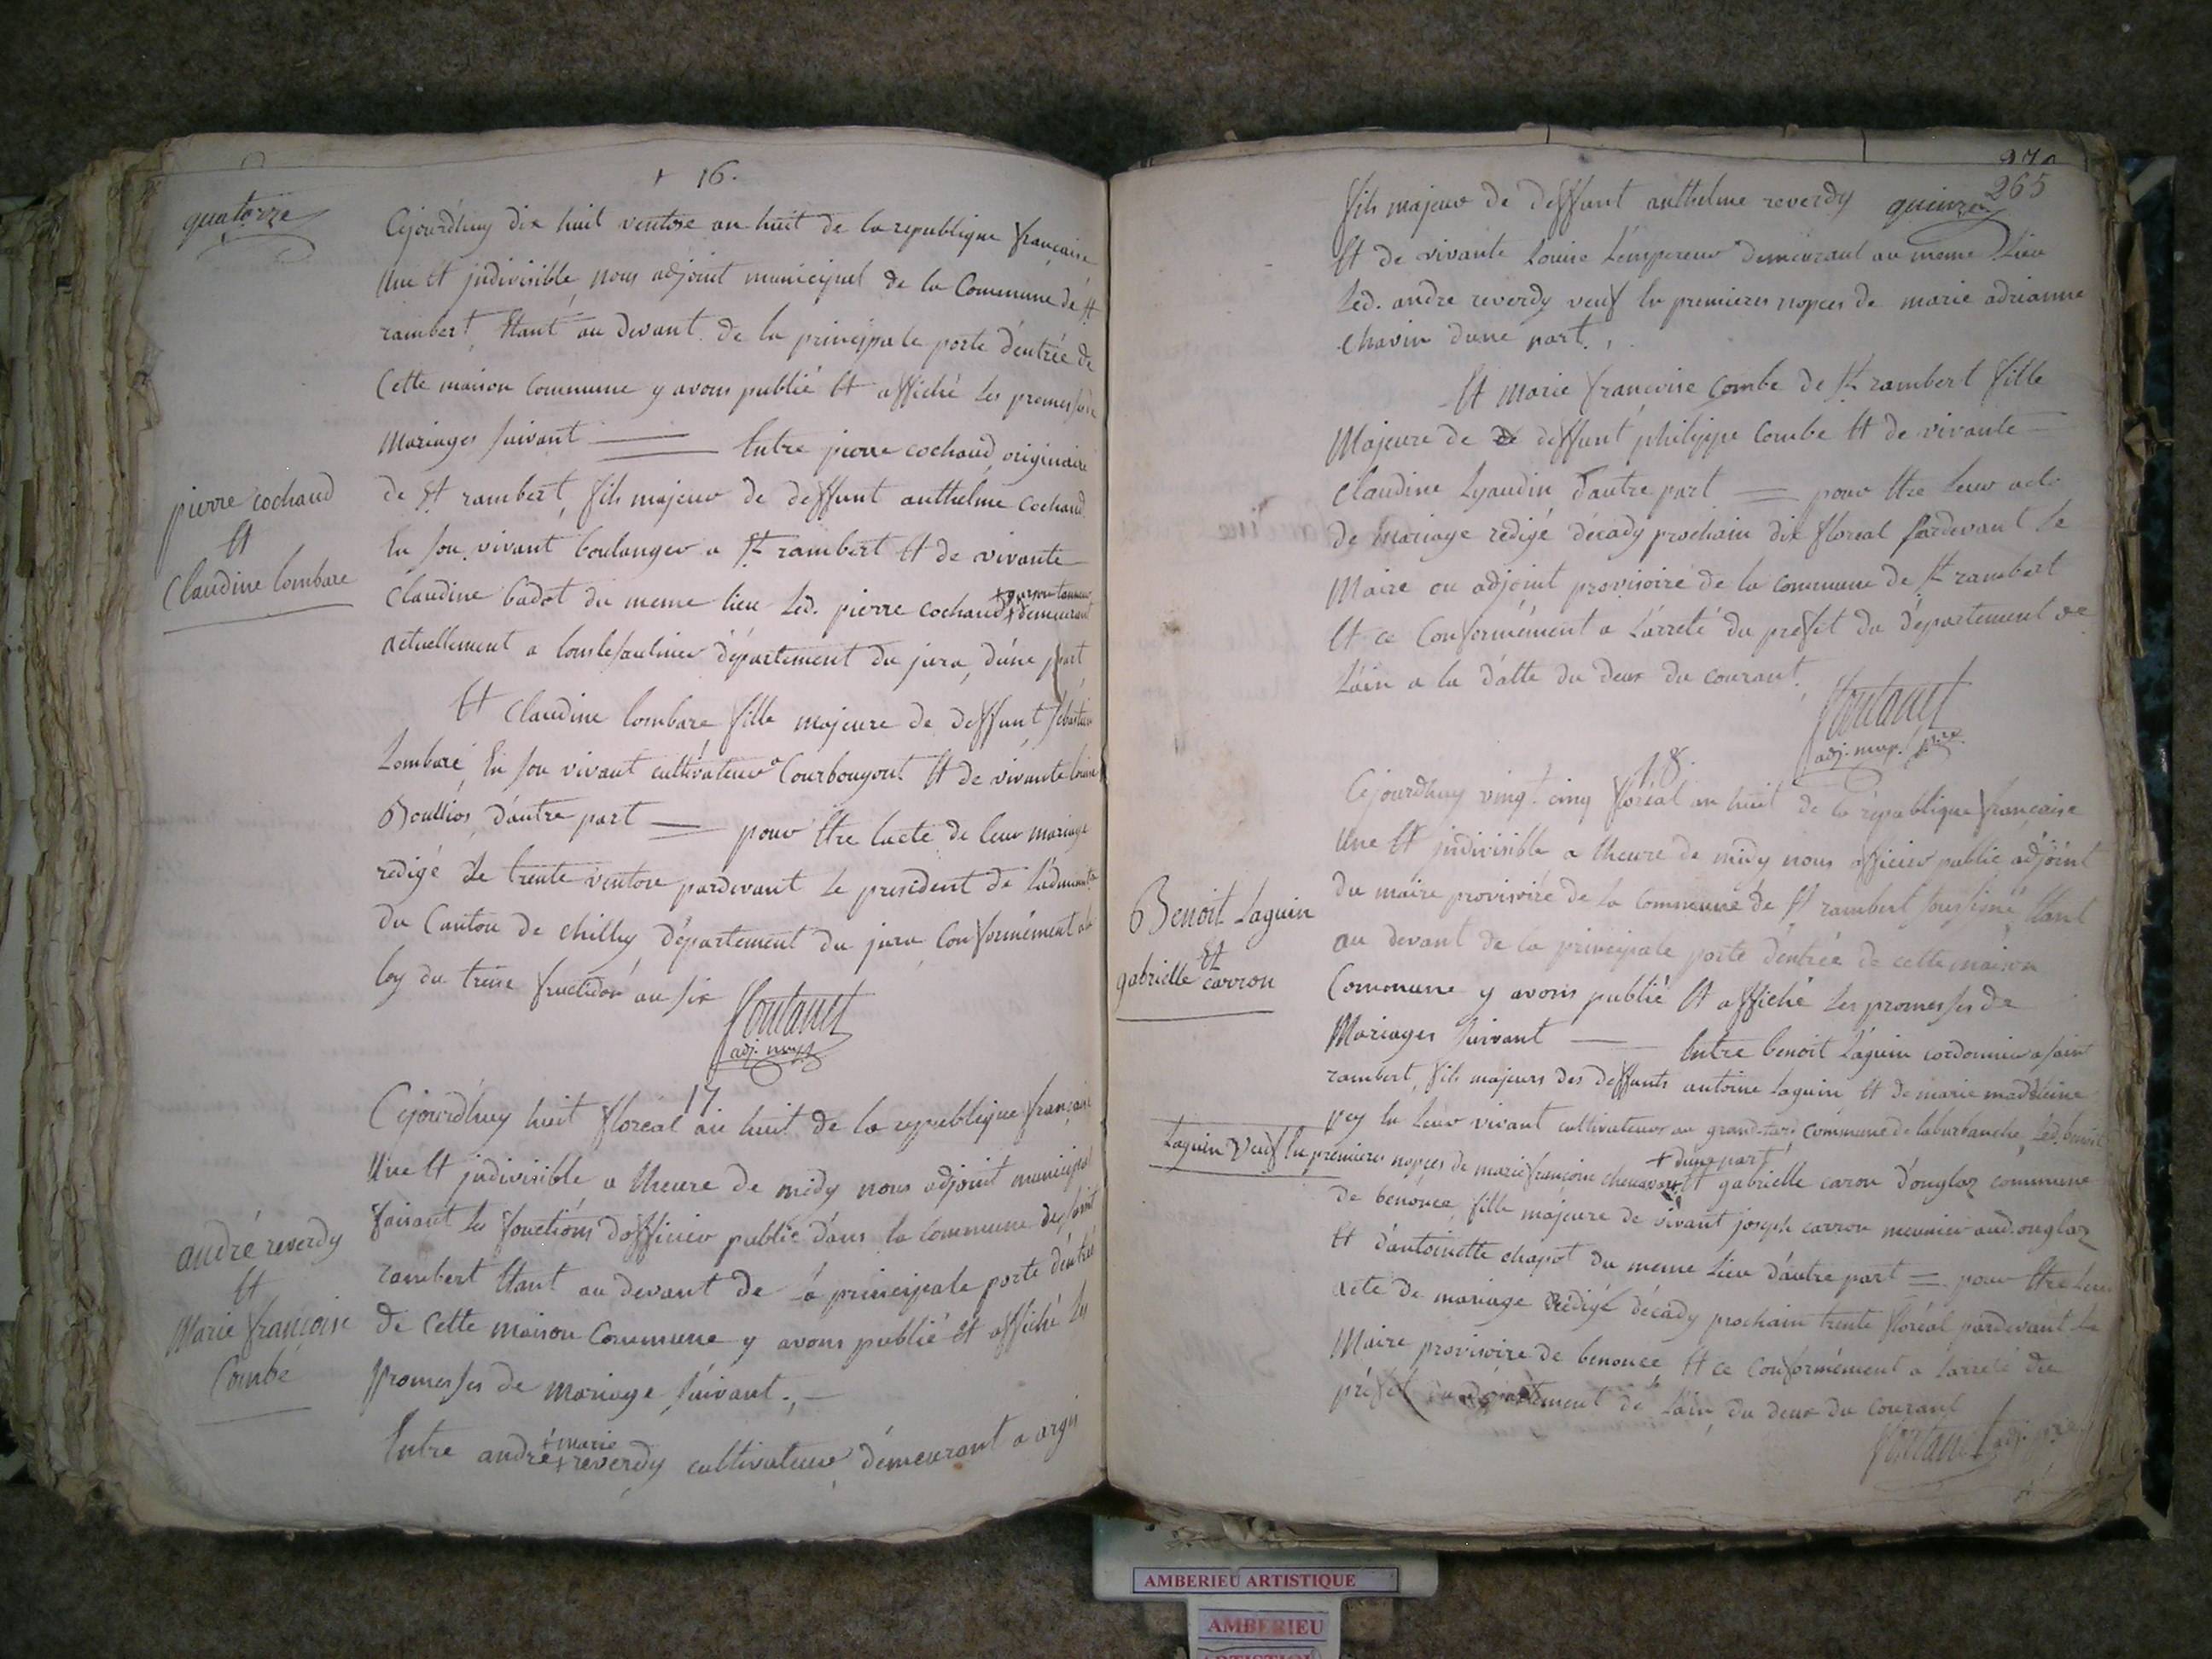 quatorze
+ 16.
Cejourdhuy dix huit ventose an huit de la republique française
une Et jndivisible, nous adjoint municipal de la Commune de St
rambert, Etant au devant de la principale porte d'entrée de
Cette maison Commune y avons publié Et affiché les promesses de
Mariages suivant — Entre pierre cochaud originaire
pierre cochaud
Et
Claudine lombare
de St rambert, fils majeur de deffunt anthelme Cochaud
En son vivant boulanger a St rambert Et de vivante
Claudine badot du meme lieu led. pierre cochaud + garson tanneur + demeurant
actuellement a lonslesaulnier département du jura, d'une part
Et Claudine lombare fille majeure de deffunt sébastien
Lombare, En son vivant cultivateur a Courbougout Et de vivante louise
d'autre part = pour Etre lacte de leur mariage
redigé le trente ventose pardevant le president de
du Canton de chilly, département du jura Conformément a la
loy du treize fructidor an six
adj. mup.
17
Cejourdhuy huit floreal an huit de la republique française
Une Et jndivisible a l'heure de midy nous adjoint municipal
faisant les fonctions d'officier public dans la Commune de saint
andré reverdy
Et
Marie françoise
Combe
rambert Etant au devant de la principale porte d'entrée
de Cette maison Commune y avons publié Et affiché les
promesses de mariage suivant.,—
Entre andré + marie + reverdy cultivateur, demeurant a argis
265
quinze
fils majeur de deffunt anthelme reverdy
Et de vivante Louise L'empereur demeurant au meme Lieu
Led. andre reverdy veuf En premieres nopces de marie adrianne
Chavin dune part.,
Et Marie francoise Combe de St rambert fille
Majeure de de deffunt philippe Combe Et de vivante
Claudine Lyaudin d'autre part = pour Etre Leur acte
de Mariage redigé décady prochain dix floreal pardevant Le
Maire ou adjoint provisoire de la commune de St rambert
Et ce Conformément a L'arreté du prefet du département de
L'ain a la datte du deux du courant.
adj. mup.
18.
Cejourdhuy vingt cinq floréal an huit de la république française
Une Et jndivisible a l'heure de midy nous officier public adjoint
du maire provisoire de la Commune de St rambert soussigné Etant
au devant de la principale porte d'entrée de cette maison
Benoit Laguin
Et
gabrielle carron
Commune y avons publié Et affiché Les promesses de
Mariages suivant — Entre benoit Laguin cordonnier a saint
rambert, fils majeurs des deffunts antoine Laguin Et de marie madeleine
pey En Leur vivant cultivateurs au commune de laburbanche, Led. benoit
Laguin Veuf En premieres nopces de marie françoise + d'une part + Et gabrielle caron d'onglaz commune
de benonce, fille majeure de vivant joseph carron meunier aud. onglaz
Et d'antoinette chapot du meme Lieu d'autre part = pour Etre Leur
acte de mariage rédigé décady prochain trente floréal pardevant Le
Maire provisoire de benonce, Et ce Conformément a L'arreté du
préfet du département de L'ain, du deux du Courant
AMBERIEU ARTISTIQUE
AMBERIEU